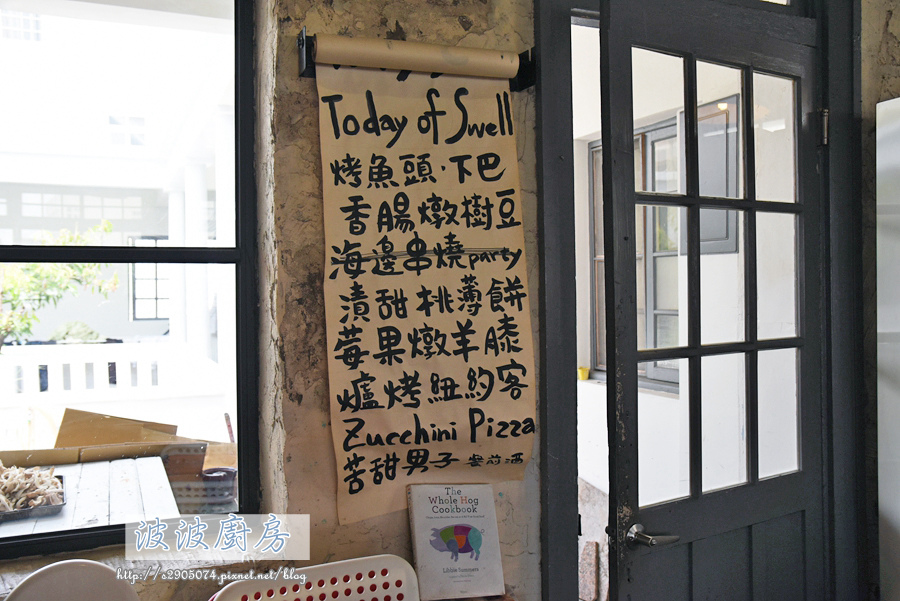 Today of Swell
烤魚頭·下巴
香腸燉樹豆
海邊串燒party
漬甜桃薄餅
莓果燉羊膝
爐烤紐約客
Zucchini Pizza
苦甜男子-餐前酒
The
Whole Hog
Cookbook
Libbie Summers
波波廚房
http://s2905074.pixnet.net/blog